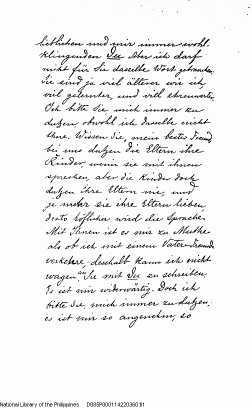 lieblichen und mir immer wohl-
klingenden Du. Aber ich darf
nicht für Sie dasselbe Wort gebrauchen.
Sie sind ja viel älter wie ich
viel gelernter, und viel ehrenwerter.
Ich bitte Sie mich immer zu
dutzen obwohl ich dasselbe nicht
thue. Wissen Sie, mein bester Freund
bei uns dutzen die Eltern ihre
Kinder, wenn sie mit ihnen
sprechen, aber die Kinder doch
dutzen ihre Eltern nie, und
je mehr sie ihre Eltern lieben
desto höflicher wird die Sprache.
Mit Ihnen ist es mir zu Muthe
als ob ich mit einem Vater-Freunde
verkehre, deshalb kann ich nicht
wagen Sie mit Du zu schreiben.
Es ist mir widerwärtig. Doch ich
bitte Sie, mich immer zu dutzen,
es ist mir so angenehm, so
National Library of the Philippines